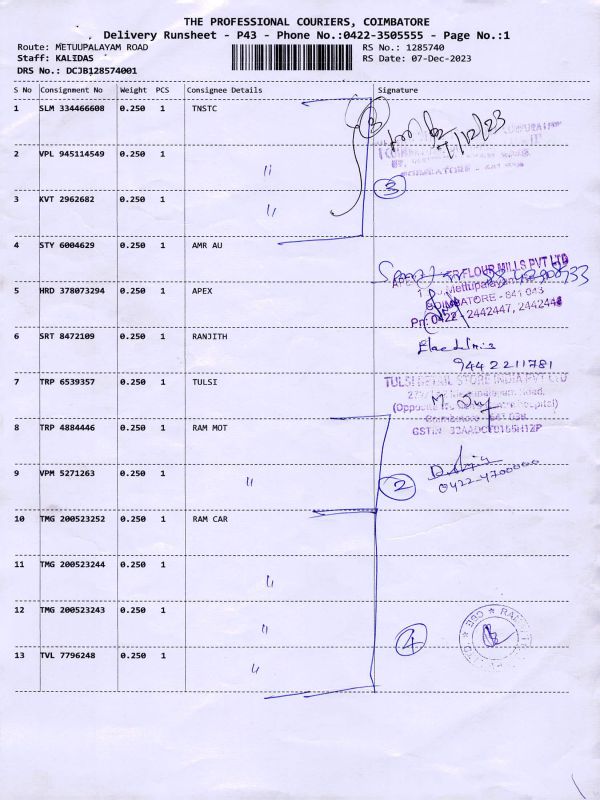 THE PROFESSIONAL COURIERS, COIMBATORE
Delivery Runsheet - P43 - Phone No.:0422-3505555 - Page No.:1
Route: METUUPALAYAM ROAD RS No.: 1285740
Staff: KALIDAS RS Date: 07-Dec-2023
DRS No.: DCJB128574001
S No Consignment No Weight PCS Consignee Details Signature
1 SLM 334466608 0.250 1 TNSTC
7/12/23
2 VPL 945114549 0.250 1 〃
COIMBATORE
3
3 KVT 2962682 0.250 1 〃
4 STY 6004629 0.250 1 AMR AU
FLOUR MILLS PVT LTD
5 HRD 378073294 0.250 1 APEX
Mettupalayam
COIMBATORE - 641 043
Ph: 0422 - 2442447, 2442448
6 SRT 8472109 0.250 1 RANJITH
9442211781
7 TRP 6539357 0.250 1 TULSI
TULSI RETAIL STORE INDIA PVT LTD
(Opposite Hospital)
8 TRP 4884446 0.250 1 RAM MOT
GSTIN
9 VPM 5271263 0.250 1 〃
2
0422-4700000
10 TMG 200523252 0.250 1 RAM CAR
11 TMG 200523244 0.250 1 〃
12 TMG 200523243 0.250 1 〃
4
13 TVL 7796248 0.250 1 〃